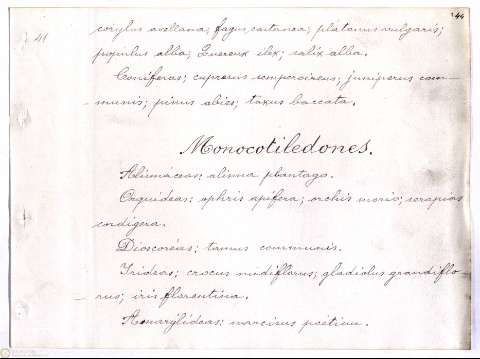 44
41
corylus avellana; fagus, castanea; platanus vulgaris;
populus alba; Quercux ilex; salix alba.
Coníferas; cupresus sempervireus; juniperus com-
munis; pinus abies; taxus barcata.
Monocotiledones.
Alismáceas; alisma plantago.
Orquídeas; ophris apifera; orchis morio; serapias
cordigera.
Dioscoréas; tamus communis.
Irideas; crocus nudiflorus; gladiolus grandiflo-
rus; iris florentina.
Amarylídeas; narcisus poeticu.